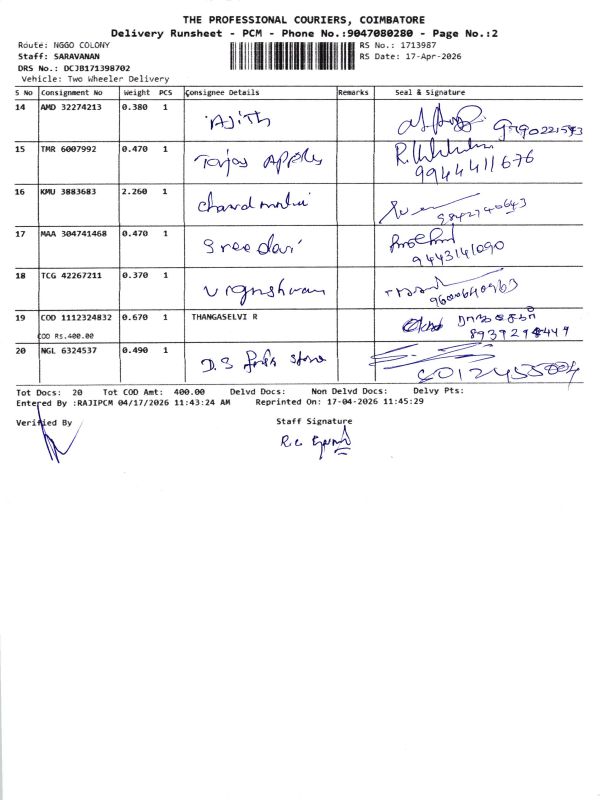 THE PROFESSIONAL COURIERS, COIMBATORE
Delivery Runsheet - PCM - Phone No.:9047080280 - Page No.:2
Route: NGGO COLONY
RS No.: 1713987
Staff: SARAVANAN
RS Date: 17-Apr-2026
DRS No.: DCJB171398702
Vehicle: Two Wheeler Delivery
S No Consignment No Weight PCS Consignee Details Remarks Seal & Signature
14 AMD 32274213 0.380 1 Ajith
15 TMR 6007992 0.470 1
9944411676
16 KMU 3883683 2.260 1
9842740643
17 MAA 304741468 0.470 1 Sree dari
9443141090
18 TCG 42267211 0.370 1
9600640963
19 COD 1112324832 0.670 1 THANGASELVI R
COD Rs.400.00
20 NGL 6324537 0.490 1 D.S
Tot Docs: 20 Tot COD Amt: 400.00 Delvd Docs: Non Delvd Docs: Delvy Pts:
Entered By :RAJIPCM 04/17/2026 11:43:24 AM Reprinted On: 17-04-2026 11:45:29
Verified By
Staff Signature